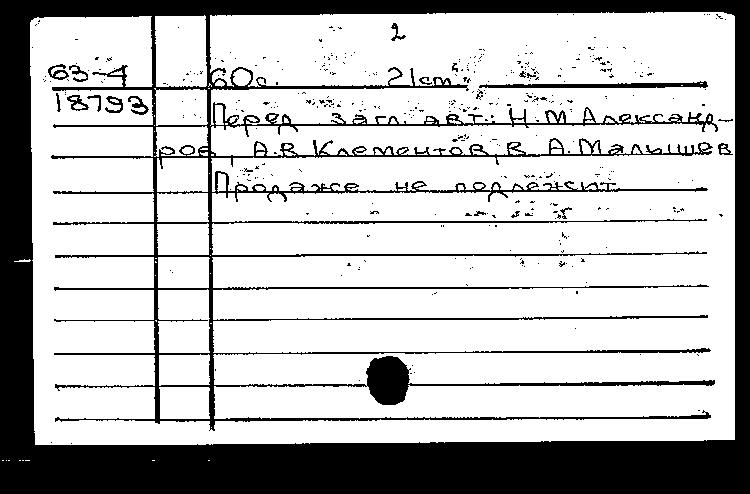 2
63-4 60с. 21cm
18793 Перед загл. авт.: Н.М.Александ-
ров, А.В.Клементов, В.А.Малышев
Продаже не подлежит